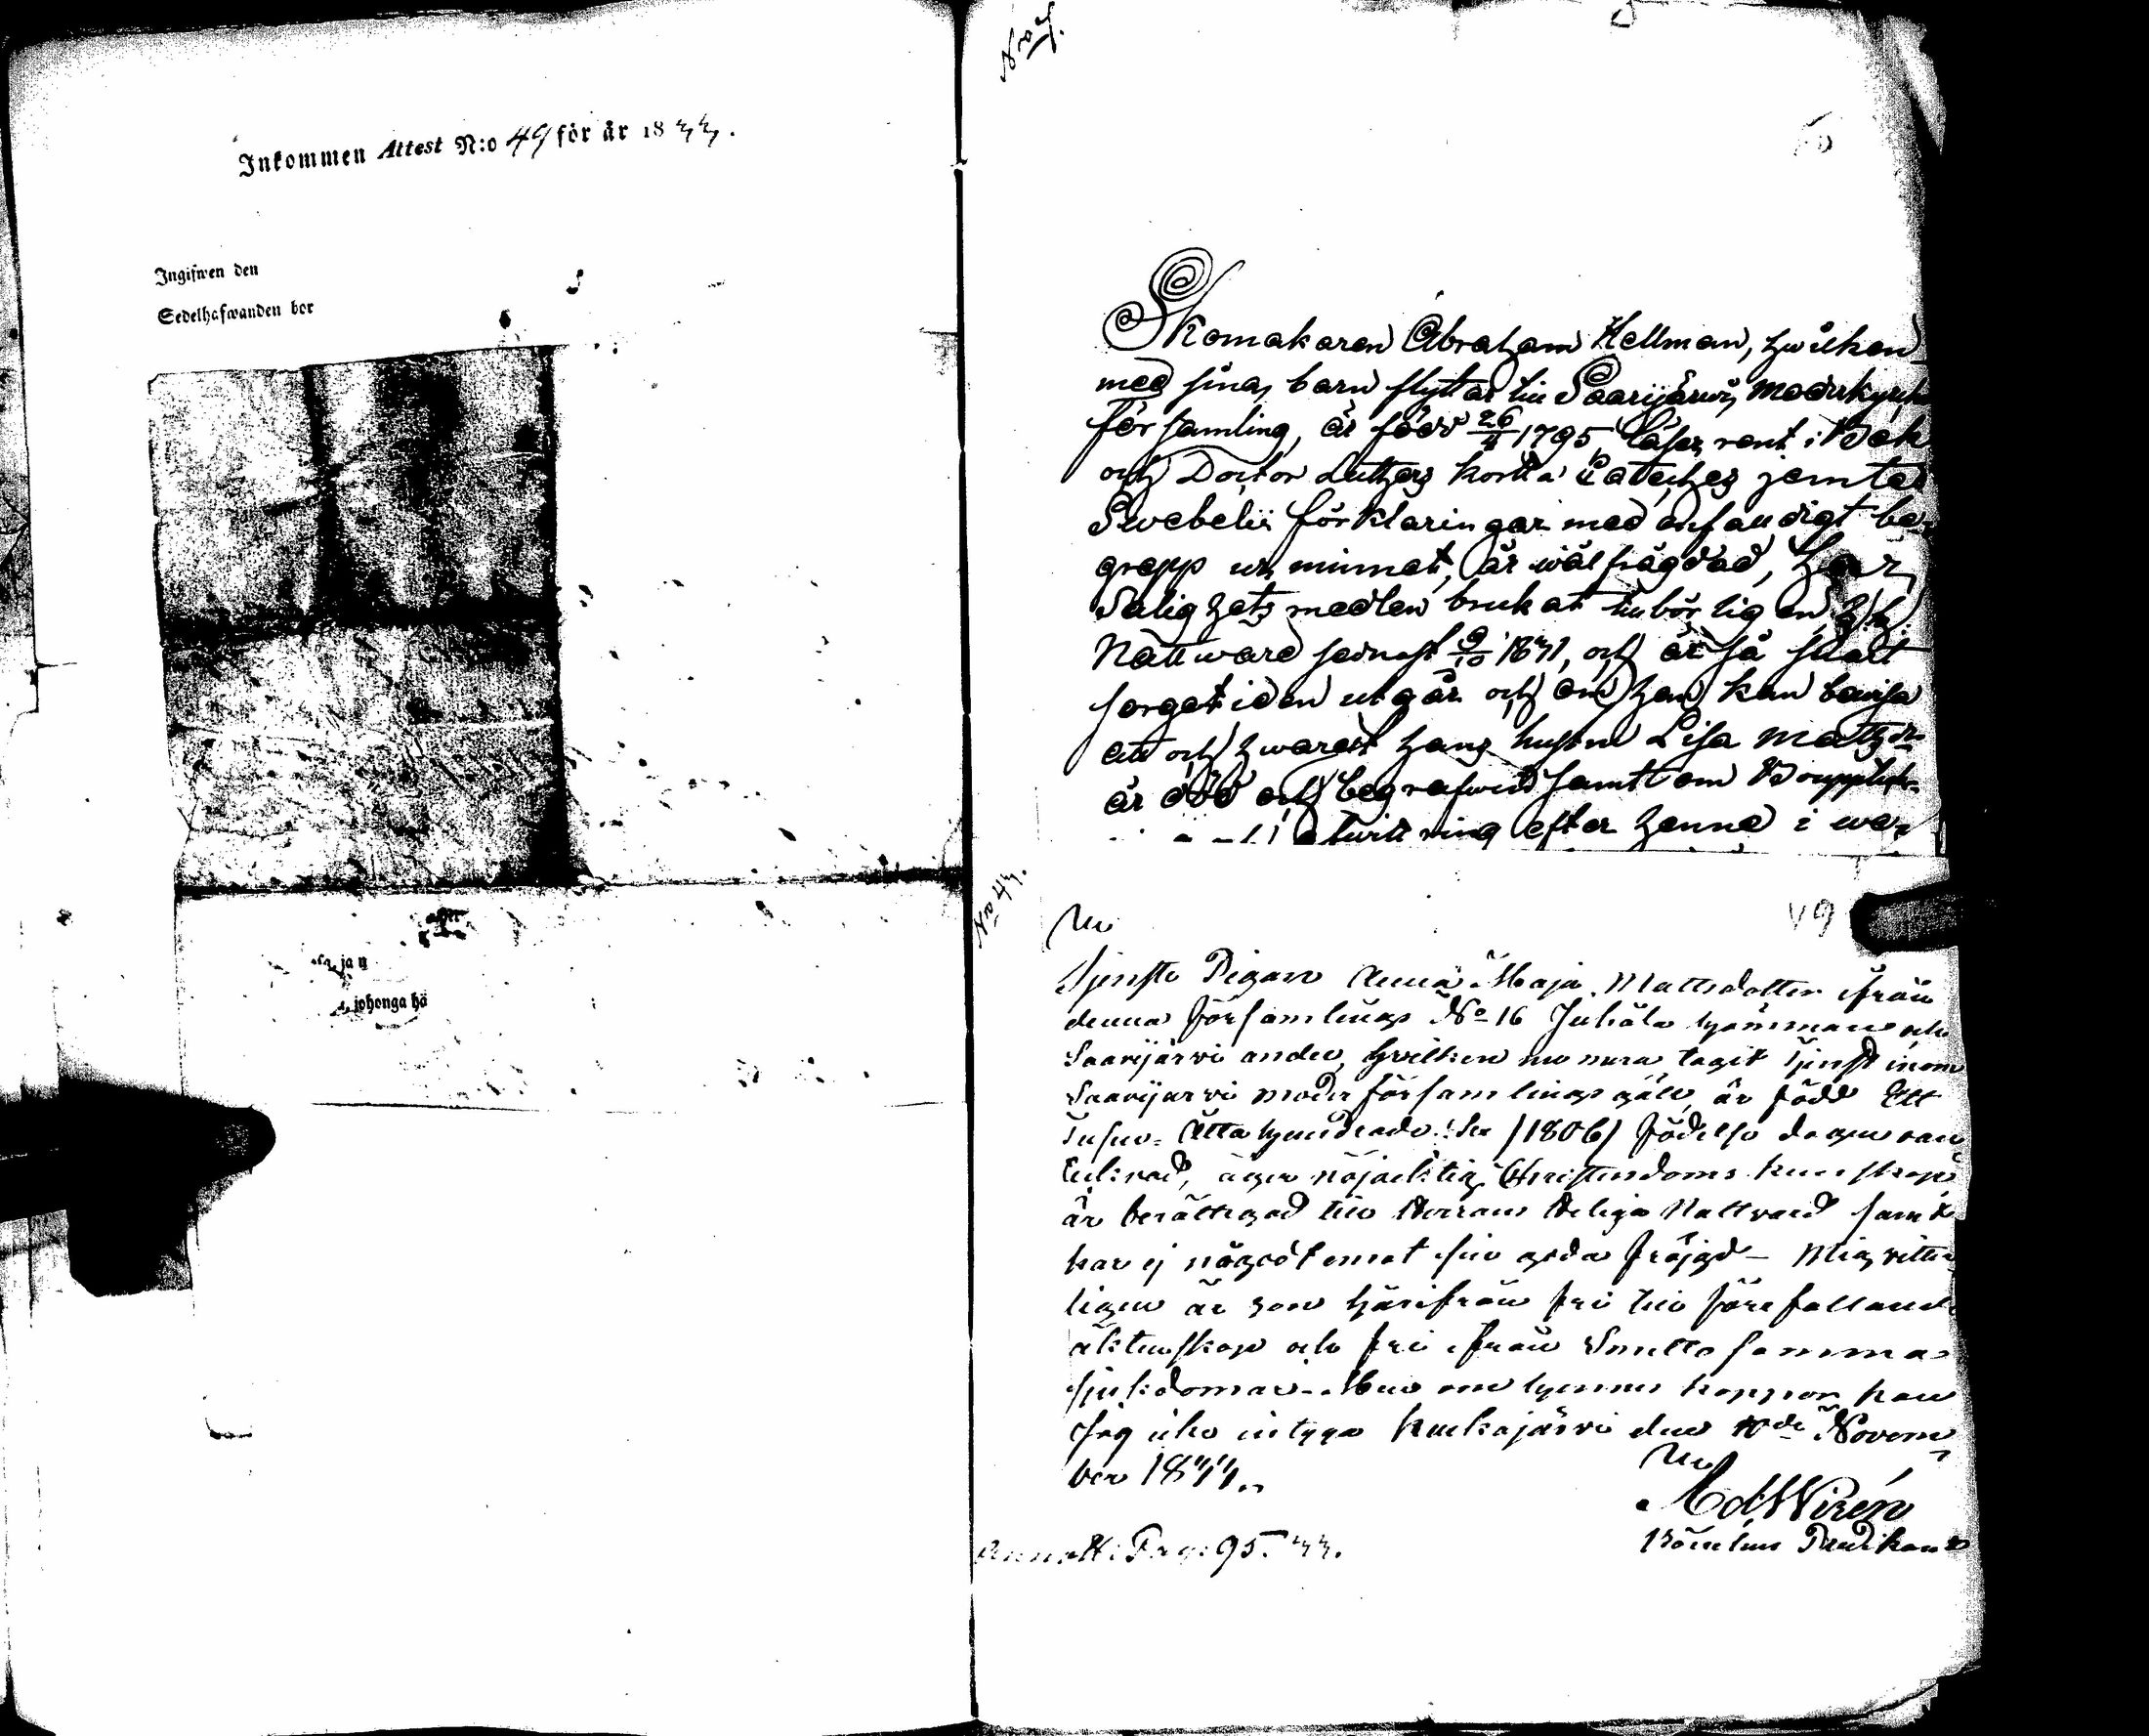 Inkommen Attest N:o 49 för år 1844.
Ingifwen den
Sedelhafwanden bor
ja n
johonga hö
Skomakaren Abraham Hellman, hwilken
med sina barn flyttar till Saarijärwi Moderkyrko
församling, är född 26/4 1795, läser rent i Bok
och Doctor Luthers korta Cateches jemte
Swebelii förklaringar med enfaldigt be-
grepp ur minnet, är wälfrägdad, har
Salighets medlen brukat tillbörligen, h. h.
Nattward sednast 9/10 1841, och är så snart
sorgetiden utgår och om han kan bewisa
att och hwarest hans hustru Lisa Matsdr
är död och begrafwen samt om Boupptek-
twittning efter henne i wa-
No 44.
49
Tjenste Pigan Anna Maja Mattsdotter ifrån
denna Församlings No 16 Juhola hemman och
Saarijärvi andel, hvilken nu mera tagit tjenst inom
Saarijärvi moder församlings gäll, är född Ett
Tusen Åtta hundrade Sex /1806/ födelse dagen oan-
tecknad, äger nöjaktig Christendoms kunskap
är berättigad till Herrans Heliga Nattvard samt
har ej något emot sin goda fräjgd - Mig vitter-
ligen är hon härifrån fri till förefallande
äktenskap och fri ifrån Smittosamma
sjukdomar. Men om hennes koppor kan
Jag icke intyga Kuckajärvi den 10de Novem
ber 1844.
Ad. Wirén
Bönehus Predikant
Pag: 95. 44.